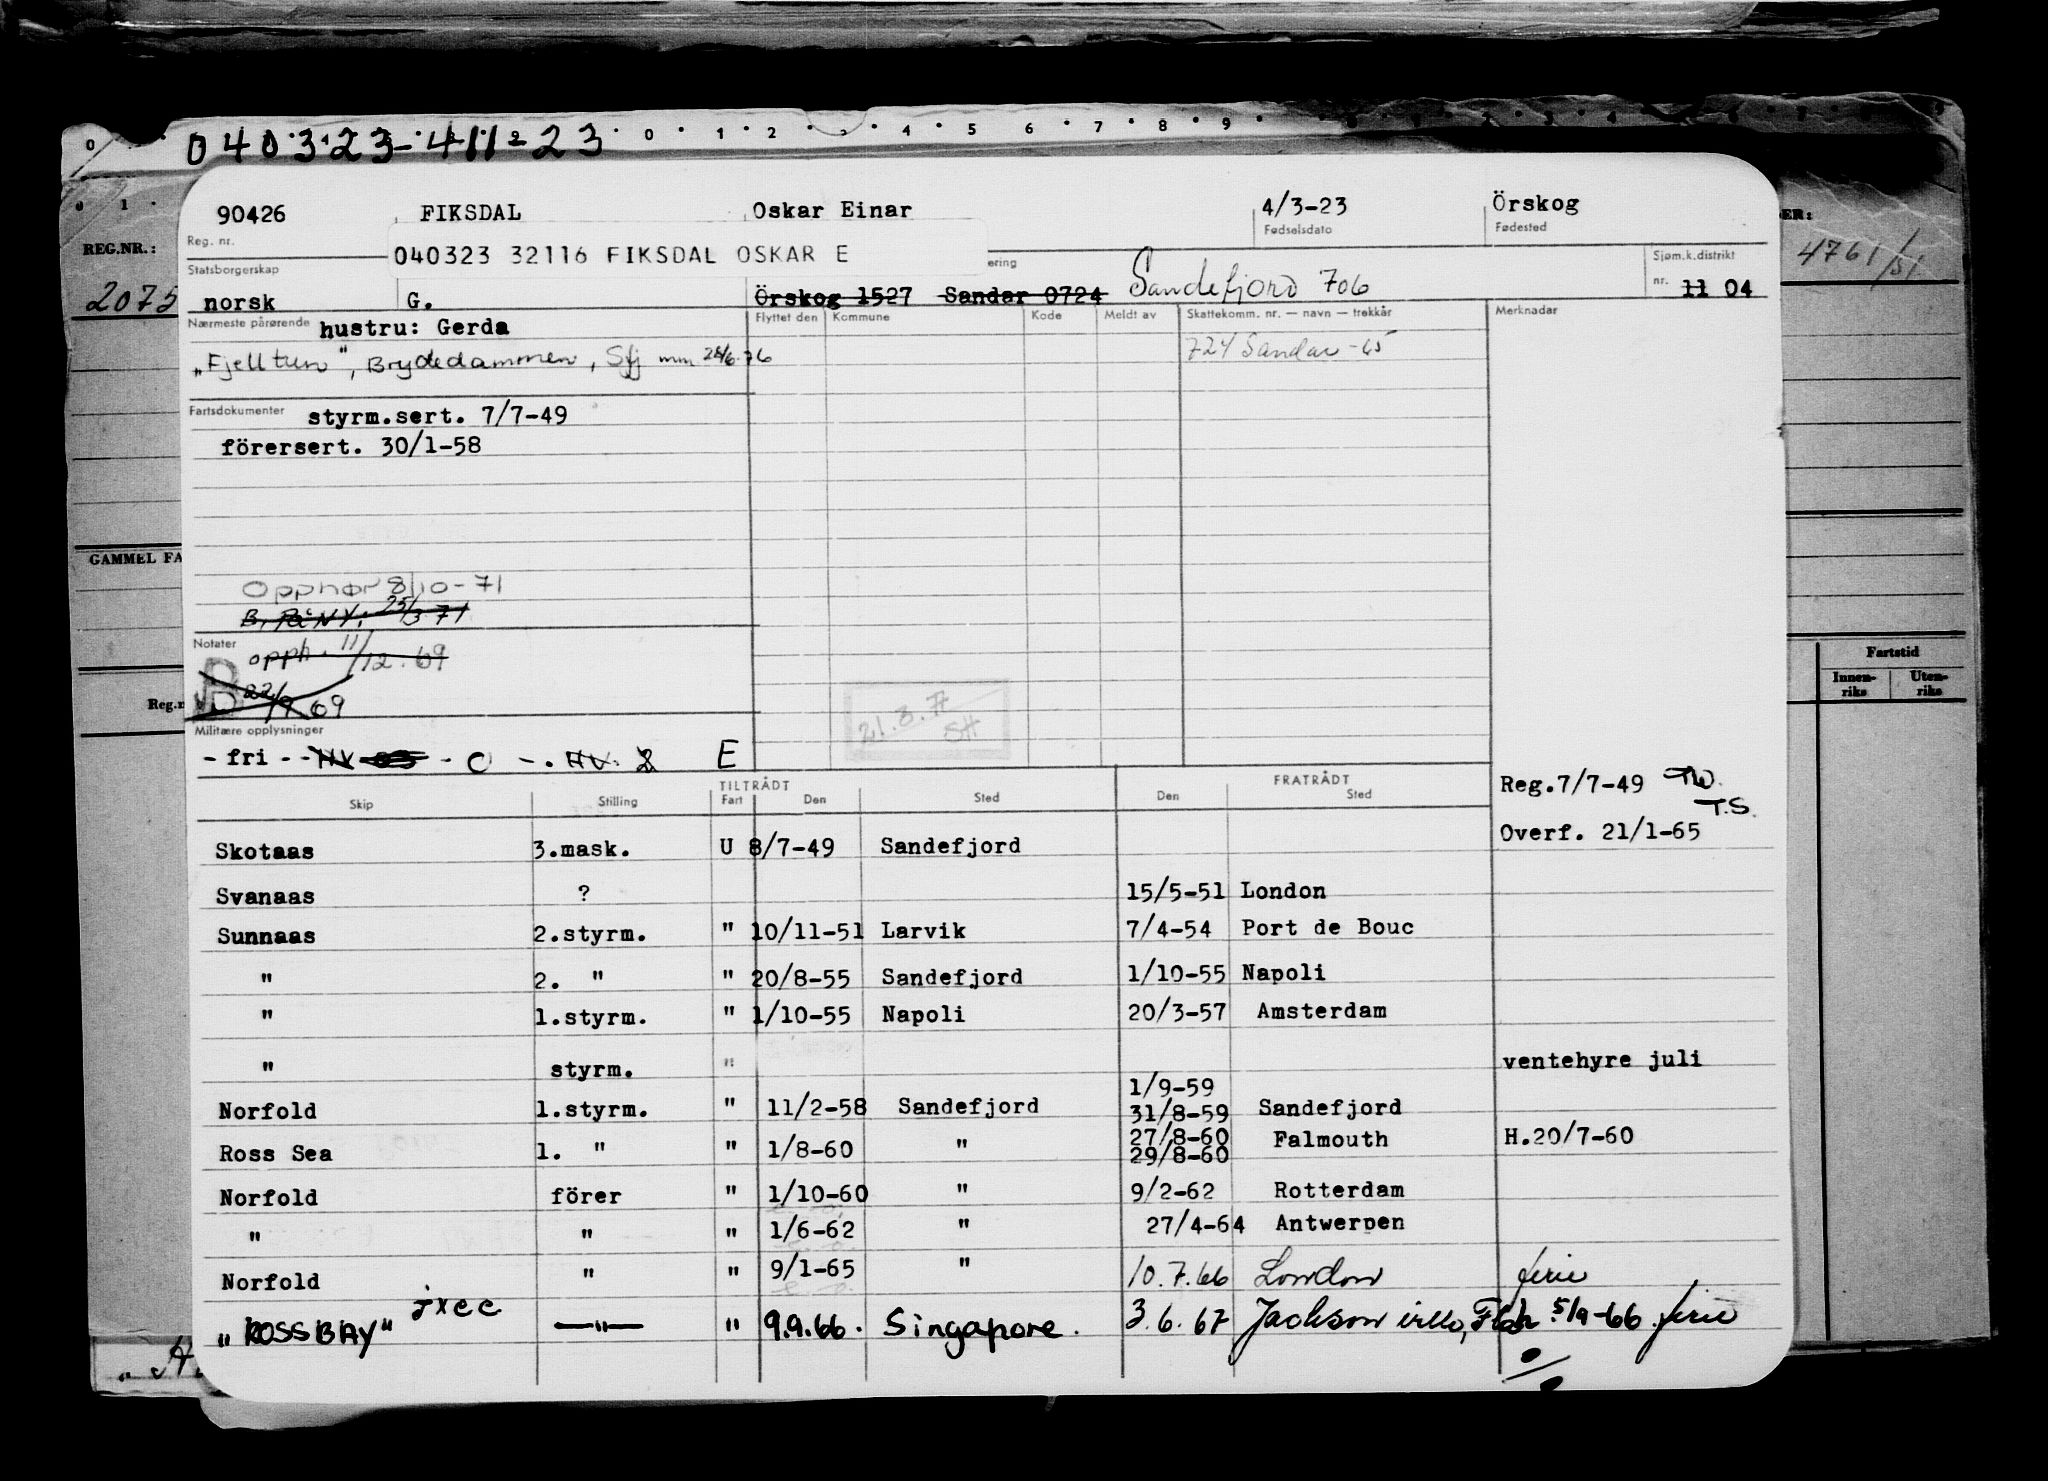 0 4 0 3 2 3 - 4 1 1 - 2 3 0 1 2 3 4 5 6 7 8 9
90426 FIKSDAL Oskar Einar 4/3-23 Örskog
Reg. nr. Fødselsdato Fødested
040323 32116 FIKSDAL OSKAR E
REG.NR.: 4761/51
Statsborgerskap ering Sjøm.k.distrikt
2075 norsk G. Örskog 1527 Sandar 0724 Sandefjord 706 nr. 11 04
Nærmeste pårørende hustru: Gerda Flyttet den Kommune Kode Meldt av Skattekomm. nr. — navn — trekkår Merknader
"Fjelltun", Brydedammen, Sfj mm 28/6-76 724 Sandar -65
Fartsdokumenter styrm.sert. 7/7-49
förersert. 30/1-58
GAMMEL FA
Opphør 8/10-71
B. På NY: 25/3 71
Notater opph. 11/12.69
B 22/9 69
Fartstid
Innen-riks Uten-riks
21.8.77 SH
Militære opplysninger
- fri - - HV - O - . HV. 2 E
Reg.7/7-49 TW. T.S.
Overf. 21/1-65
TILTRÅDT FRATRÅDT
Skip Stilling Fart Den Sted Den Sted
Skotaas 3.mask. U 8/7-49 Sandefjord
Svanaas ? 15/5-51 London
Sunnaas 2.styrm. " 10/11-51 Larvik 7/4-54 Port de Bouc
" 2. " " 20/8-55 Sandefjord 1/10-55 Napoli
" 1.styrm. " 1/10-55 Napoli 20/3-57 Amsterdam
" styrm. " ventehyre juli
1/9-59
Norfold 1.styrm. " 11/2-58 Sandefjord 31/8-59 Sandefjord
27/8-60
Ross Sea 1. " " 1/8-60 " 29/8-60 Falmouth H.20/7-60
Norfold förer " 1/10-60 " 9/2-62 Rotterdam
" " " 1/6-62 " 27/4-64 Antwerpen
Norfold " " 9/1-65 " 10.7.66 London ferie
"ROSS BAY" jxcc —"— " 9.9.66. Singapore. 3.6.67 Jacksonville, Fla 5/9-66 ferie